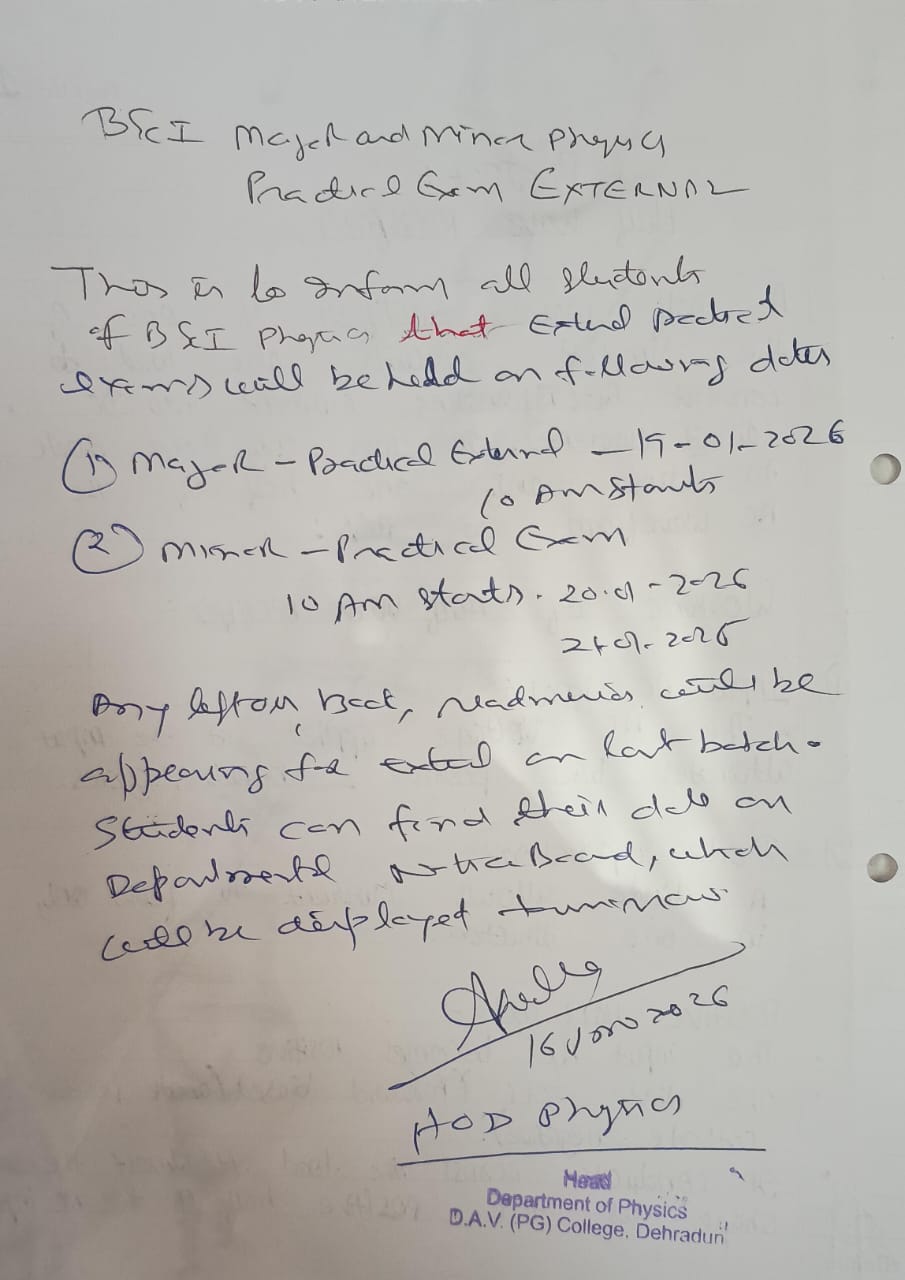 BSc I Major and Minor Physics
Practical Exam EXTERNAL
This is to inform all students
of BSc I Physics that External Practical
exams will be held on following dates
(1) Major - Practical External - 19-01-2026
10 AM Starts
(2) Minor - Practical Exam
10 AM starts. 20.01-2026
21.01.2026
Any leftover, Back, will be
appearing for external on last batch.
Students can find their date on
Departmental Notice Board, which
will be displayed tomorrow.
16 Jan 2026
HOD Physics
Head
Department of Physics
D.A.V. (PG) College, Dehradun